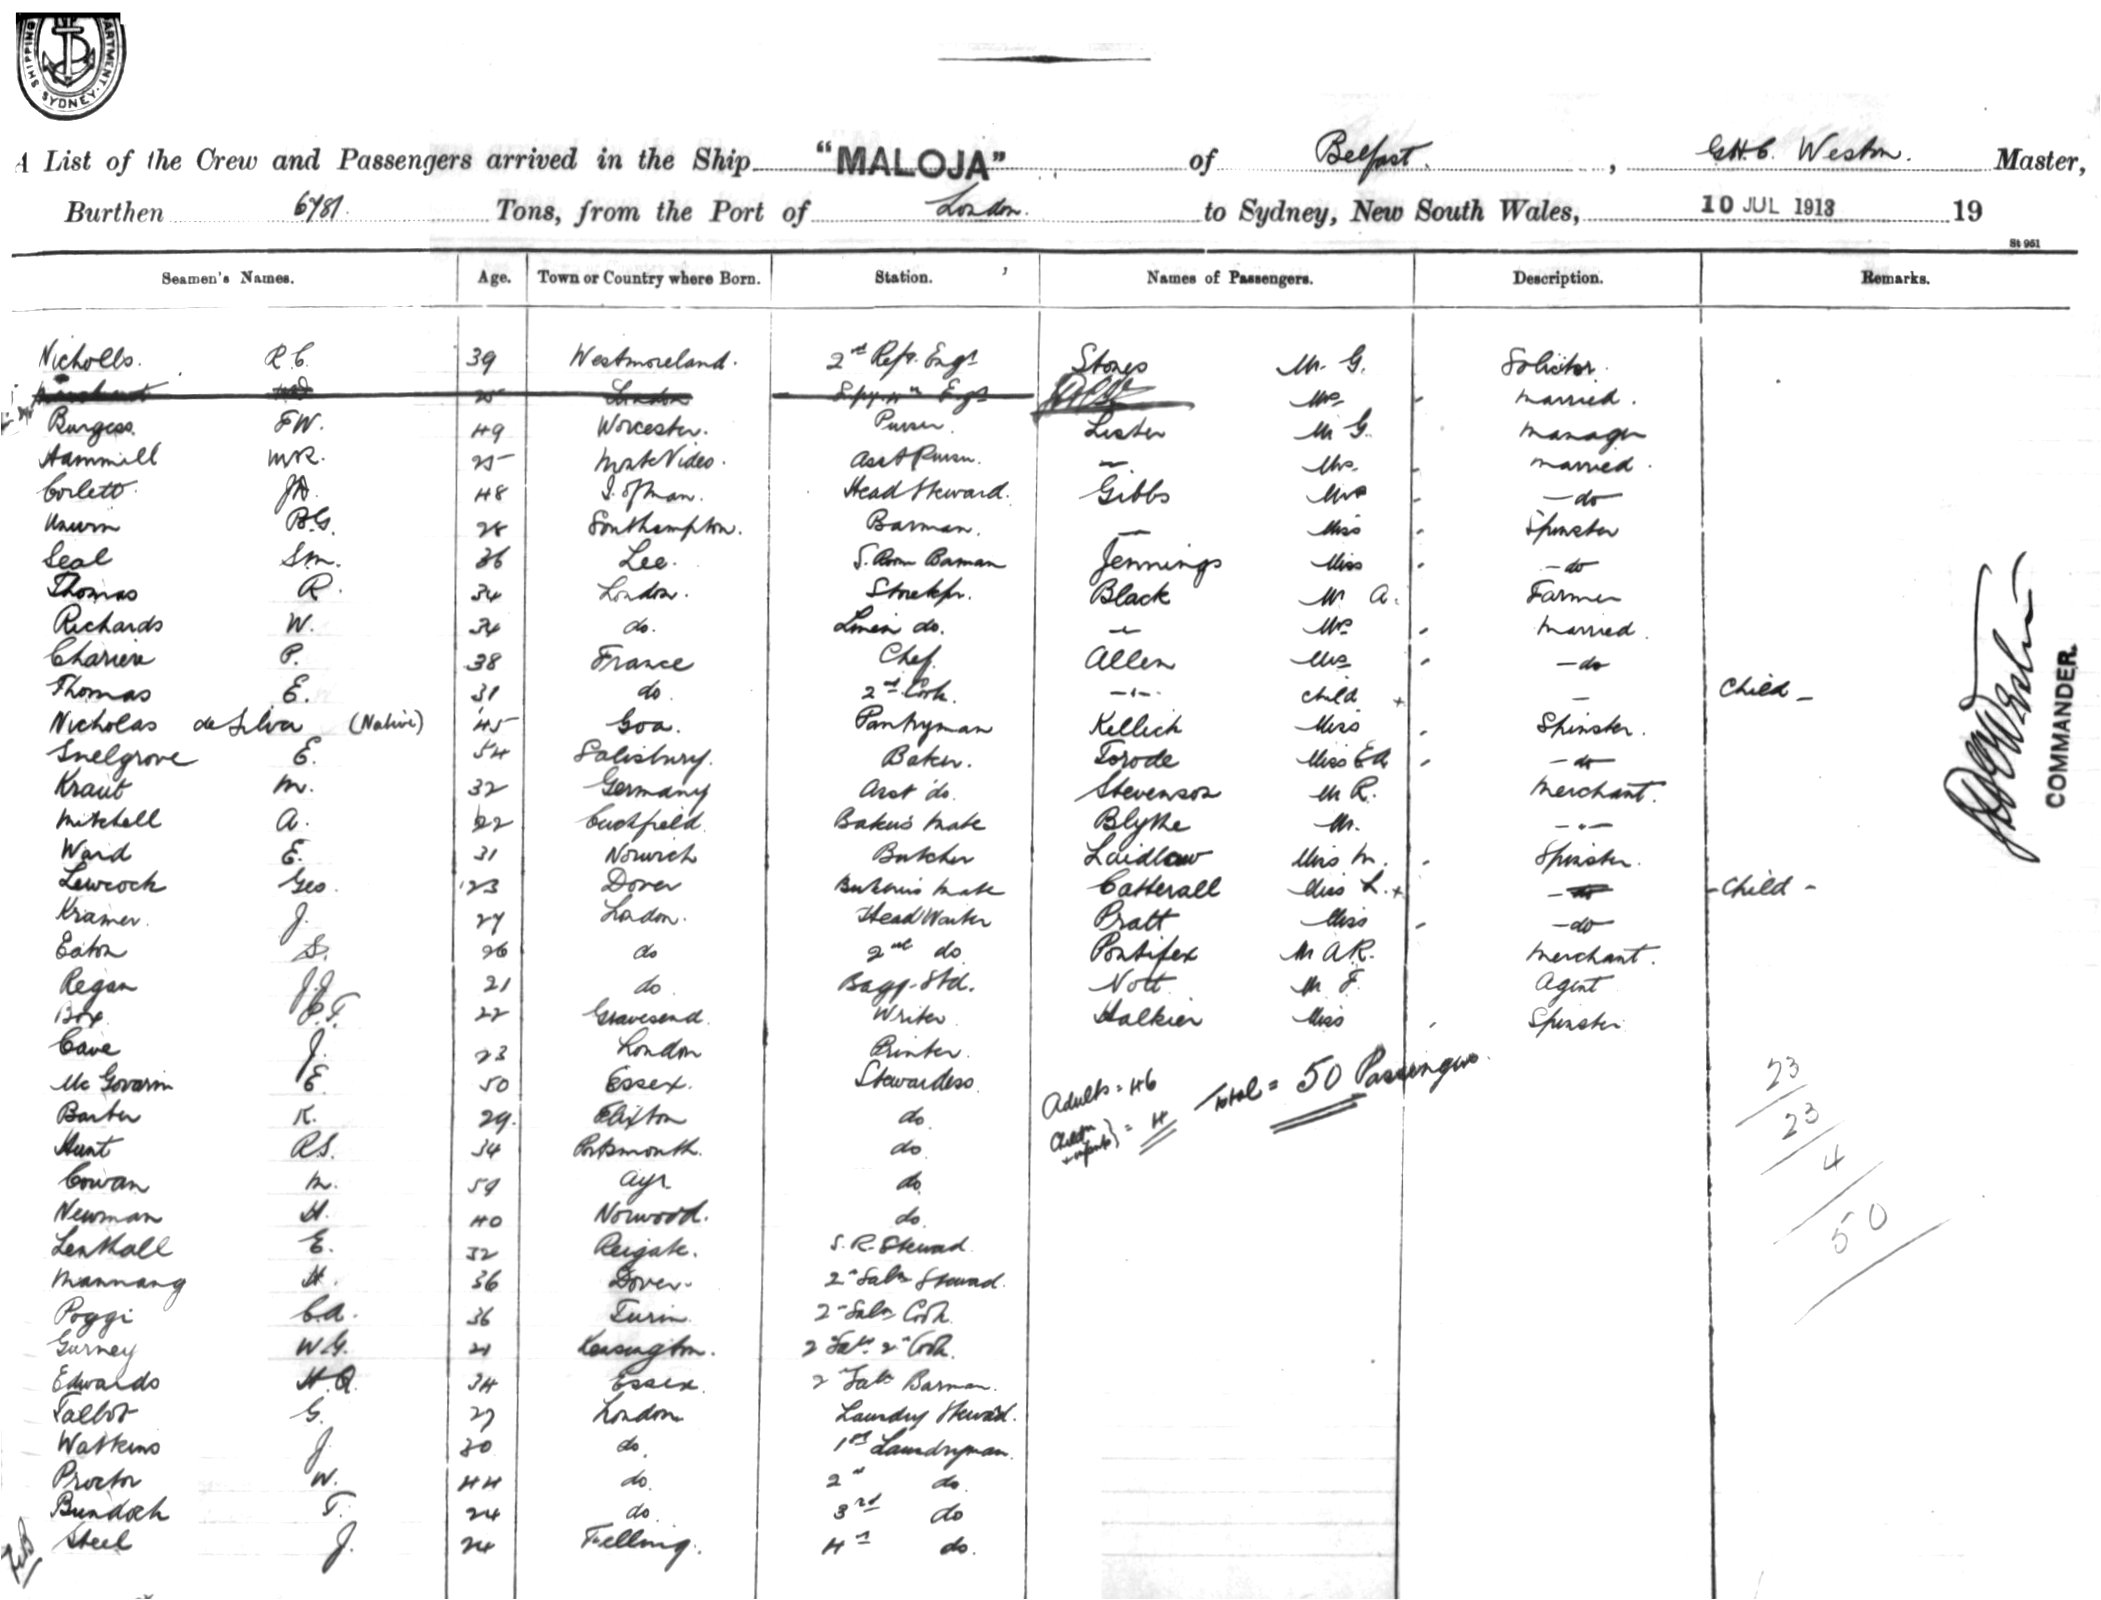 SHIPPING DEPARTMENT. SYDNEY
A List of the Crew and Passengers arrived in the Ship "MALOJA" of Belfast. , G.H.C. Weston. Master,
Burthen 6781. Tons, from the Port of London. to Sydney, New South Wales, 10 JUL 1913 19
St 961
Seamen's Names. Age. Town or Country where Born. Station. Names of Passengers. Description. Remarks.
Nicholls. R.C. 39 Westmoreland. 2nd Refr. Engr Stones Mr. G. Solicitor.
25 London Engr Mrs married.
Burgess. F.W. 49 Worcester. Purser. Lister Mr G. Manager
Hammill M.R. 25 Monte Video. Asst Purser. — Mrs. married.
Corlett. J.A. 48 I. of Man. Head Steward. Gibbs Mrs — do
B.G. 28 Southampton. Barman. — Miss Spinster
Seal S.M. 36 Lee. S. Room Barman Jennings Miss — do
Thomas R. 34 London. Storekpr. Black Mr A. Farmer
Richards W. 34 do. Linen do. — Mrs Married.
Chariere P. 38 France Chef. Allen Mrs — do
Thomas E. 31 do. 2nd Cook. — " — child + — Child —
Nicholas de Silva (Native) 45 Goa. Pantryman Kellick Miss Spinster.
Snelgrove E. 54 Salisbury. Baker. Torode Miss E A — do
Kraut M. 32 Germany Asst do. Stevenson Mr R. Merchant.
Mitchell A. 22 Cuckfield. Baker's Mate Blythe Mr. — " —
Ward E. 31 Norwich Butcher Laidlaw Miss M. Spinster.
Lewcock Geo. 23 Dover Butcher's Mate Catterall Miss L. + — do — Child —
Kramer. J. 27 London. Head Waiter Pratt Miss — do
Eaton S. 26 do 2nd do Pontifex Mr A.R. Merchant.
Regan J.J. 21 do. Bagg. Std. Nott Mr F. Agent
Box C.F. 22 Gravesend. Writer Halkier Miss Spinster
Cave J. 23 London Printer.
Mc Govarin E. 50 Essex. Stewardess
Adults = 46 Total = 50 Passengers.
Children + infants } = 4
23
23
4
50
Barber K. 29. Elixton do.
Hunt R.S. 34 Portsmouth. do
Cowan M. 59 Ayr do.
Newman H. 40 Norwood. do.
Lenthall E. 32 Reigate. S. R. Steward
Mannang H. 36 Dover. 2nd Saln Steward.
Poggi C.A. 36 Turin 2nd Saln Cook.
Gurney W.G. 21 Kensington. 2nd Saln 2nd Cook.
Edwards H.A. 34 Essex. 2nd Saln Barman.
Talbot G. 27 London Laundry Steward.
Watkins J. 30 do. 1st Laundryman.
Proctor W. 44 do. 2nd do
Bundock T. 24 do. 3rd do
Steel J. 24 Felling. 4th do.
COMMANDER.